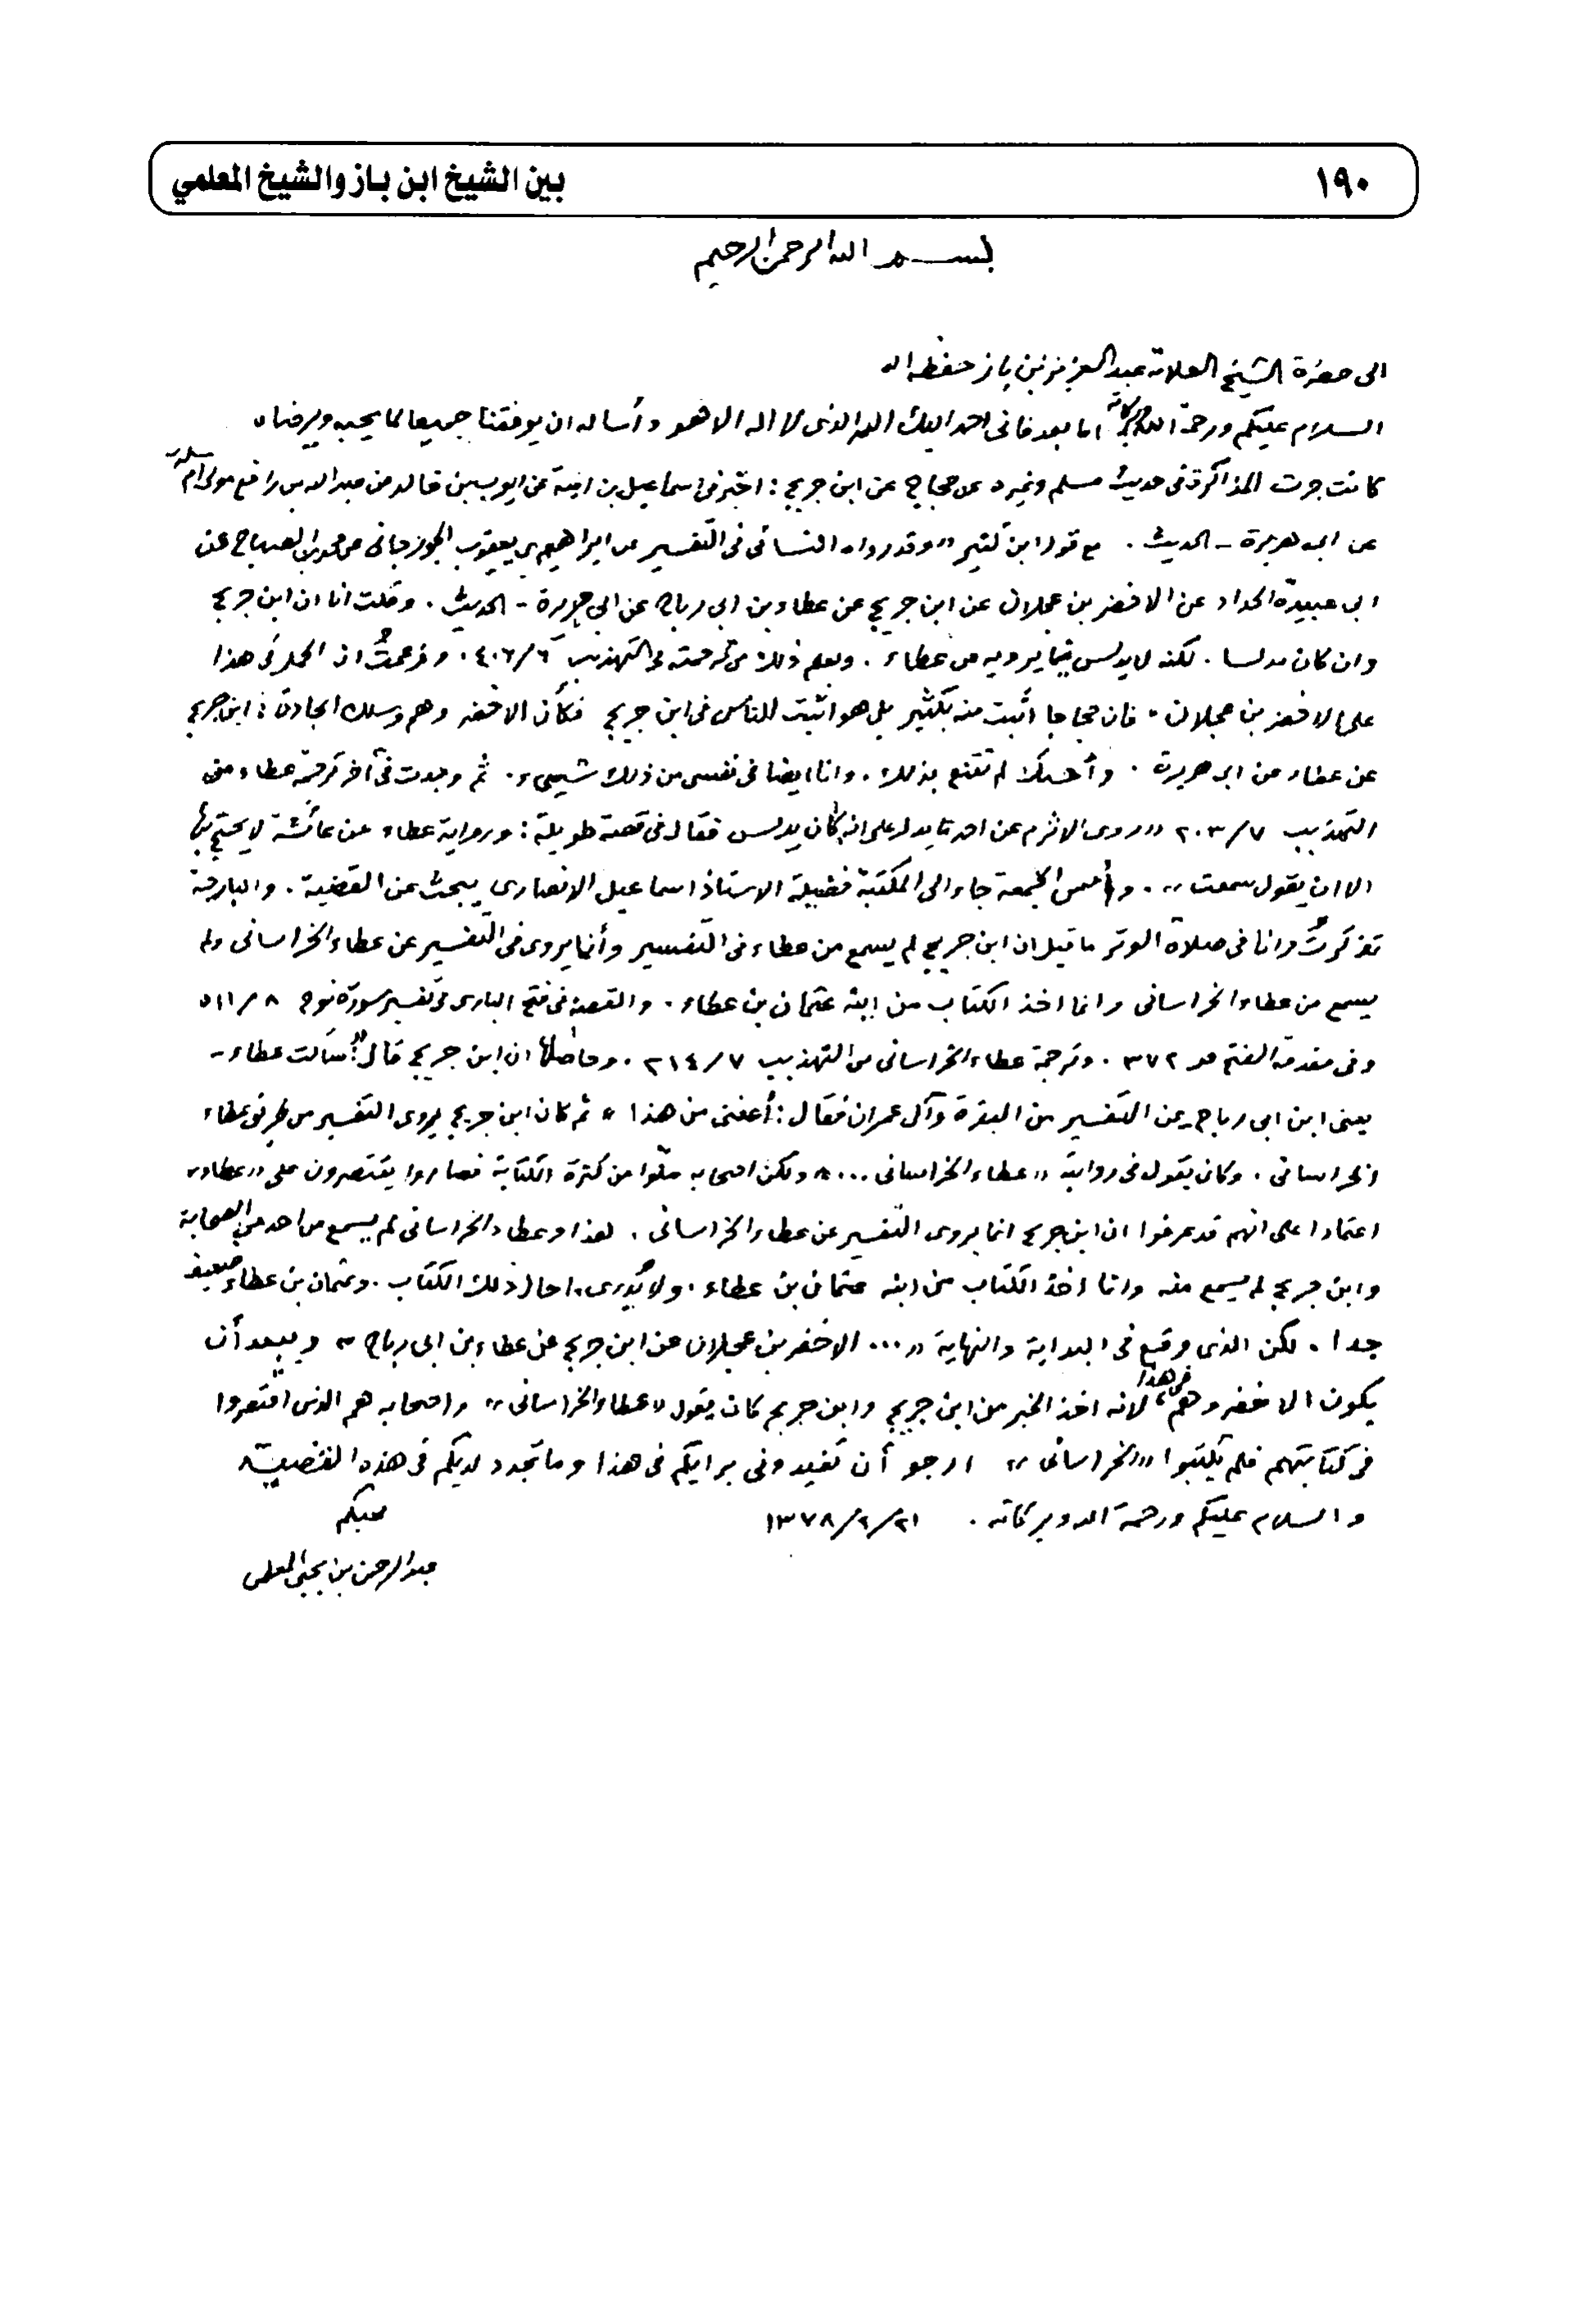 ١٩٠
بين الشيخ ابن باز والشيخ المعلمي
بسم الله الرحمن الرحيم
الى حضرة الشيخ العلامة عبد العزيز بن باز حفظه الله
السلام عليكم ورحمة الله وبركاته اما بعد فانى احمد اليك الله الذى لا اله الا هو وأسأله ان يوفقنا جميعا لما يحبه ويرضاه
كانت جرت المذاكرة فى حديث مسلم وغيره عن حجاج عن ابن جريج : اخبرنى اسماعيل بن امية عن ايوب بن خالد عن عبد الله بن رافع مولى ام سلمة
عن ابى هريرة - الحديث . مع قول ابن كثير « وقد رواه النسائى فى التفسير عن ابراهيم بن يعقوب الجوزجانى عن محمد بن الصباح عن
ابى عبيدة الحداد عن الاخضر بن عجلان عن ابن جريج عن عطاء بن ابى رباح عن ابى هريرة - الحديث . وقلت انا ان ابن جريج
وان كان مدلسا . لكنه لا يدلس فيما يرويه عن عطاء . ويعلم ذلك من ترجمته فى التهذيب ٦/٤٠٦ . وزعمتُ ان الحمل فى هذا
على الاخضر بن عجلان . فان حجاجا أثبت منه بكثير بل هو اثبت الناس فى ابن جريج فكأن الاخضر وهم وسلك الجادة : ابن جريج
عن عطاء عن ابى هريرة . وأحسبك لم تقتنع بذلك . وانا ايضا فى نفسى من ذلك شيىء . ثم وجدت فى آخر ترجمة عطاء من
التهذيب ٧/٢٠٣ « روى الاثرم عن احمد ما يدل على انه كان يدلس فقال فى قصة طويلة : ورواية عطاء عن عائشة لا يحتج بها
الا ان يقول سمعت » . وأمس الجمعة جاء الى المكتبة فضيلة الاستاذ اسماعيل الانصارى يبحث عن القضية . والبارحة
تذكرتُ وانا فى صلاة الوتر ما قيل ان ابن جريج لم يسمع من عطاء فى التفسير وأنما يروى فى التفسير عن عطاء الخراسانى ولم
يسمع من عطاء الخراسانى وانما اخذ الكتاب من ابنه عثمان بن عطاء . والقصة فى فتح البارى فى تفسير سورة نوح ٨/٥١١
وفى مقدمة الفتح صـ ٣٧٢ . وترجمة عطاء الخراسانى من التهذيب ٧/٢١٤ . وحاصلها ان ابن جريج قال : « سألت عطاء -
يعنى ابن ابى رباح - عن التفسير من البقرة وآل عمران فقال : أعفنى من هذا » ثم كان ابن جريج يروى التفسير من طريق عطاء
الخراسانى . وكان يقول فى روايته « عطاء الخراسانى ... » ولكن اصحابه ملّوا من كثرة الكتابة فصاروا يقتصرون على « عطاء »
اعتمادا على انهم قد عرفوا ان ابن جريج انما يروى التفسير عن عطاء الخراسانى . هذا وعطاء الخراسانى لم يسمع من احد من الصحابة
وابن جريج لم يسمع منه وانما اخذ الكتاب من ابنه عثمان بن عطاء . ولا يُدرى ما حال ذلك الكتاب . وعثمان بن عطاء ضعيف
جدا . لكن الذى وقع فى البداية والنهاية « ... الاخضر بن عجلان عن ابن جريج عن عطاء بن ابى رباح » ويبعد أن
يكون الاخضر وهم فى هذا ، لانه اخذ الخبر من ابن جريج وابن جريج كان يقول « عطاء الخراسانى » واصحابه هم الذين اقتصروا
فى كتابتهم فلم يكتبوا « الخراسانى » ارجو أن تفيدونى برايكم فى هذا وما تجدد لديكم فى هذه القضية
والسلام عليكم ورحمة الله وبركاته . ٢١/٢/١٣٧٨
محبكم
عبد الرحمن بن يحيى المعلمى